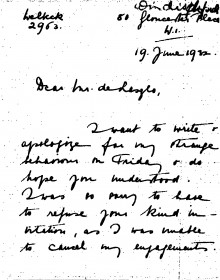 Welbeck
2962.
50
Gloucester Place
W.1.
19. June 1932
Dear Mr. de Laszlo,
I want to write &
apologize for my strange
behaviour on Friday & do
hope you understood.
I was so sorry to have
to refuse your kind in-
vitation, as I was unable
to cancel my engagements.